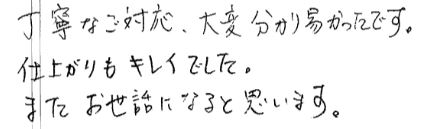 丁寧なご対応、大変分かり易かったです。
仕上がりもキレイでした。
また お世話になると思います。